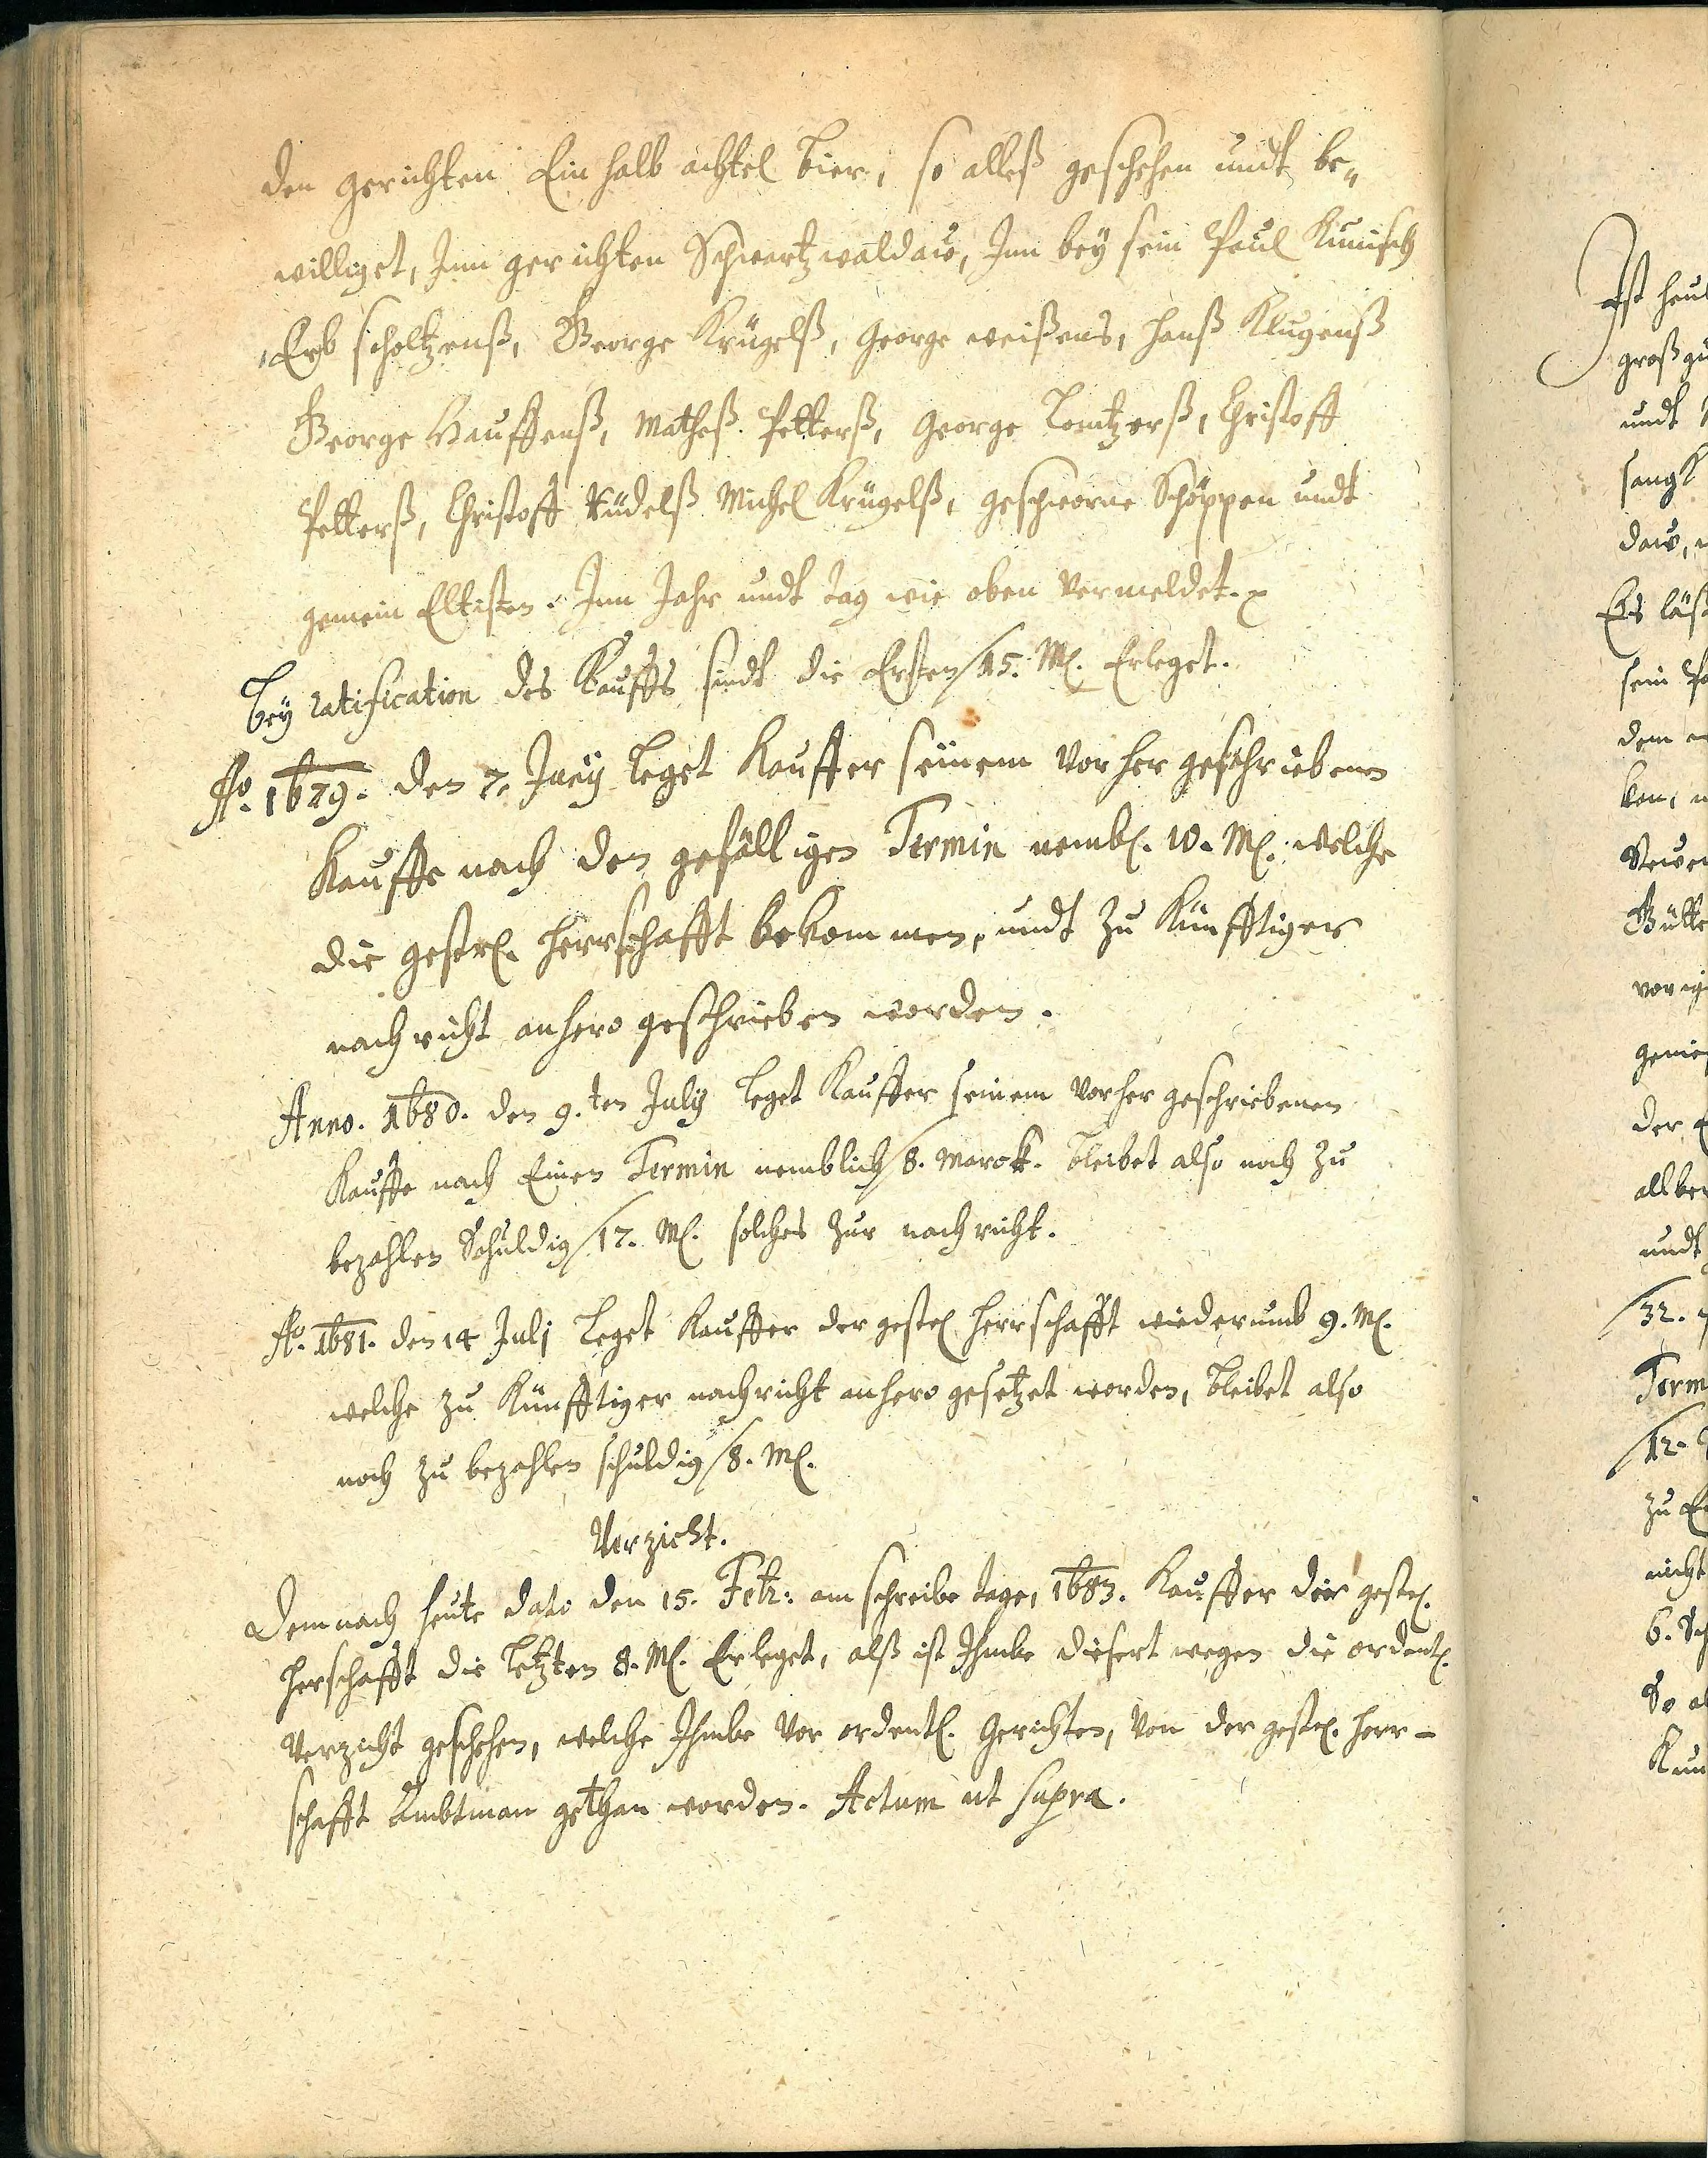 den gerichten Ein halb achtel bier, so alleß geschehen undt be„
williget, Inn gerichten Schwartzwaldaw, Inn bey sein Paul Kunisch
Erb scholtzenß, George Krügelß, George weißens, Hanß Klugenß
George Hauffenß, Matheß Petterß, George Christoff
Petterß, Christoff Rüdelß Michel Krügelß, geschworne Schöppen undt
gemein Eltisten. Inn Jahr undt tag wie oben vermeldet.
Bey ratification des Kauffs sindt die Ersten / 15. M. Erleget.
Ao. 1679. den 7. July leget Kauffer seinem vorher geschriebenen
Kauffe nach den gefälligen Termin nembl. 10. M. welche
die gestr. Herrschafft bekommen, undt zu Künfftiger
nachricht anhero geschrieben worden.
Anno. 1680. den 9.ten July leget Kauffer seinem vorher geschriebenen
Kauffe nach Einen Termin nemblich / 8. Marck. bleibet also noch zu
bezahlen Schuldig / 17. M. solches zur nachricht.
Ao. 1681. den 14 Julj leget Kauffer der gestr. Herrschafft wiederumb 9. M.
welche zu Künfftiger nachricht anhero gesetzet worden, bleibet also
noch zu bezahlen schuldig / 8. M.
Verzicht.
Demnach heute dato den 15. Febr: am schreibe tage, 1683. Kauffer der gestr.
Herschafft die letzten 8. M. Erleget, alß ist Ihmbe diesert wegen die ordentl.
Verzicht geschehen, welche Ihmbe vor ordentl. Gerichten, von der gestr. Herr-
schafft Ambtman gethan worden. Actum ut supra.